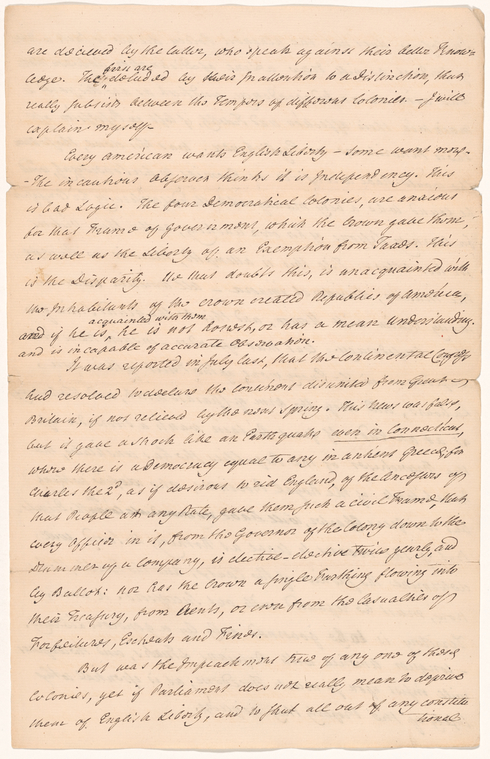 are deceived by the latter, who speak against their better Know-
ledge. The first are deluded by their Inattention to a Distinction, that
really subsists between the Tempers of different Colonies. — I will
explain myself —
Every American wants English Liberty — some want more —
- The incautious Observer thinks it is Independency. This
is bad Logic. The four Democratical Colonies, are anxious
for that Frame of Government, which the Crown gave them,
as well as the Liberty of an Exemption from Taxes. This
is the Disparity. He that doubts this, is unacquainted with
the Inhabitants of the crown created Republics of America,
and if he is acquainted with them, he is not honest, or has a mean understanding
and is incapable of accurate Observation.
It was reported in July last, that the Continental Congress
had resolved to declare the continent disunited from Great
Britain, if not relieved by the next Spring. This News was false,
but it gave a shock like an Earthquake even in Connecticut,
where there is a Democracy equal to any in antient Greece, for
Charles the 2d, as if desirous to rid England, of the Ancestors of
that People at any Rate, gave them such a civil Frame that
every Officer in it, from the Governor of the Colony down to the
Drummer of a Company, is elective - elective twice yearly, and
by Ballot: nor has the Crown a single Farthing flowing into
their Treasury, from Rents, or even from the Casualties of
Forfeitures, Escheats and Fines.
But was the Impeachment true of any one of these
Colonies, yet if Parliament does not really mean to deprive
them of English Liberty, and to shut all out of any constitu
tional